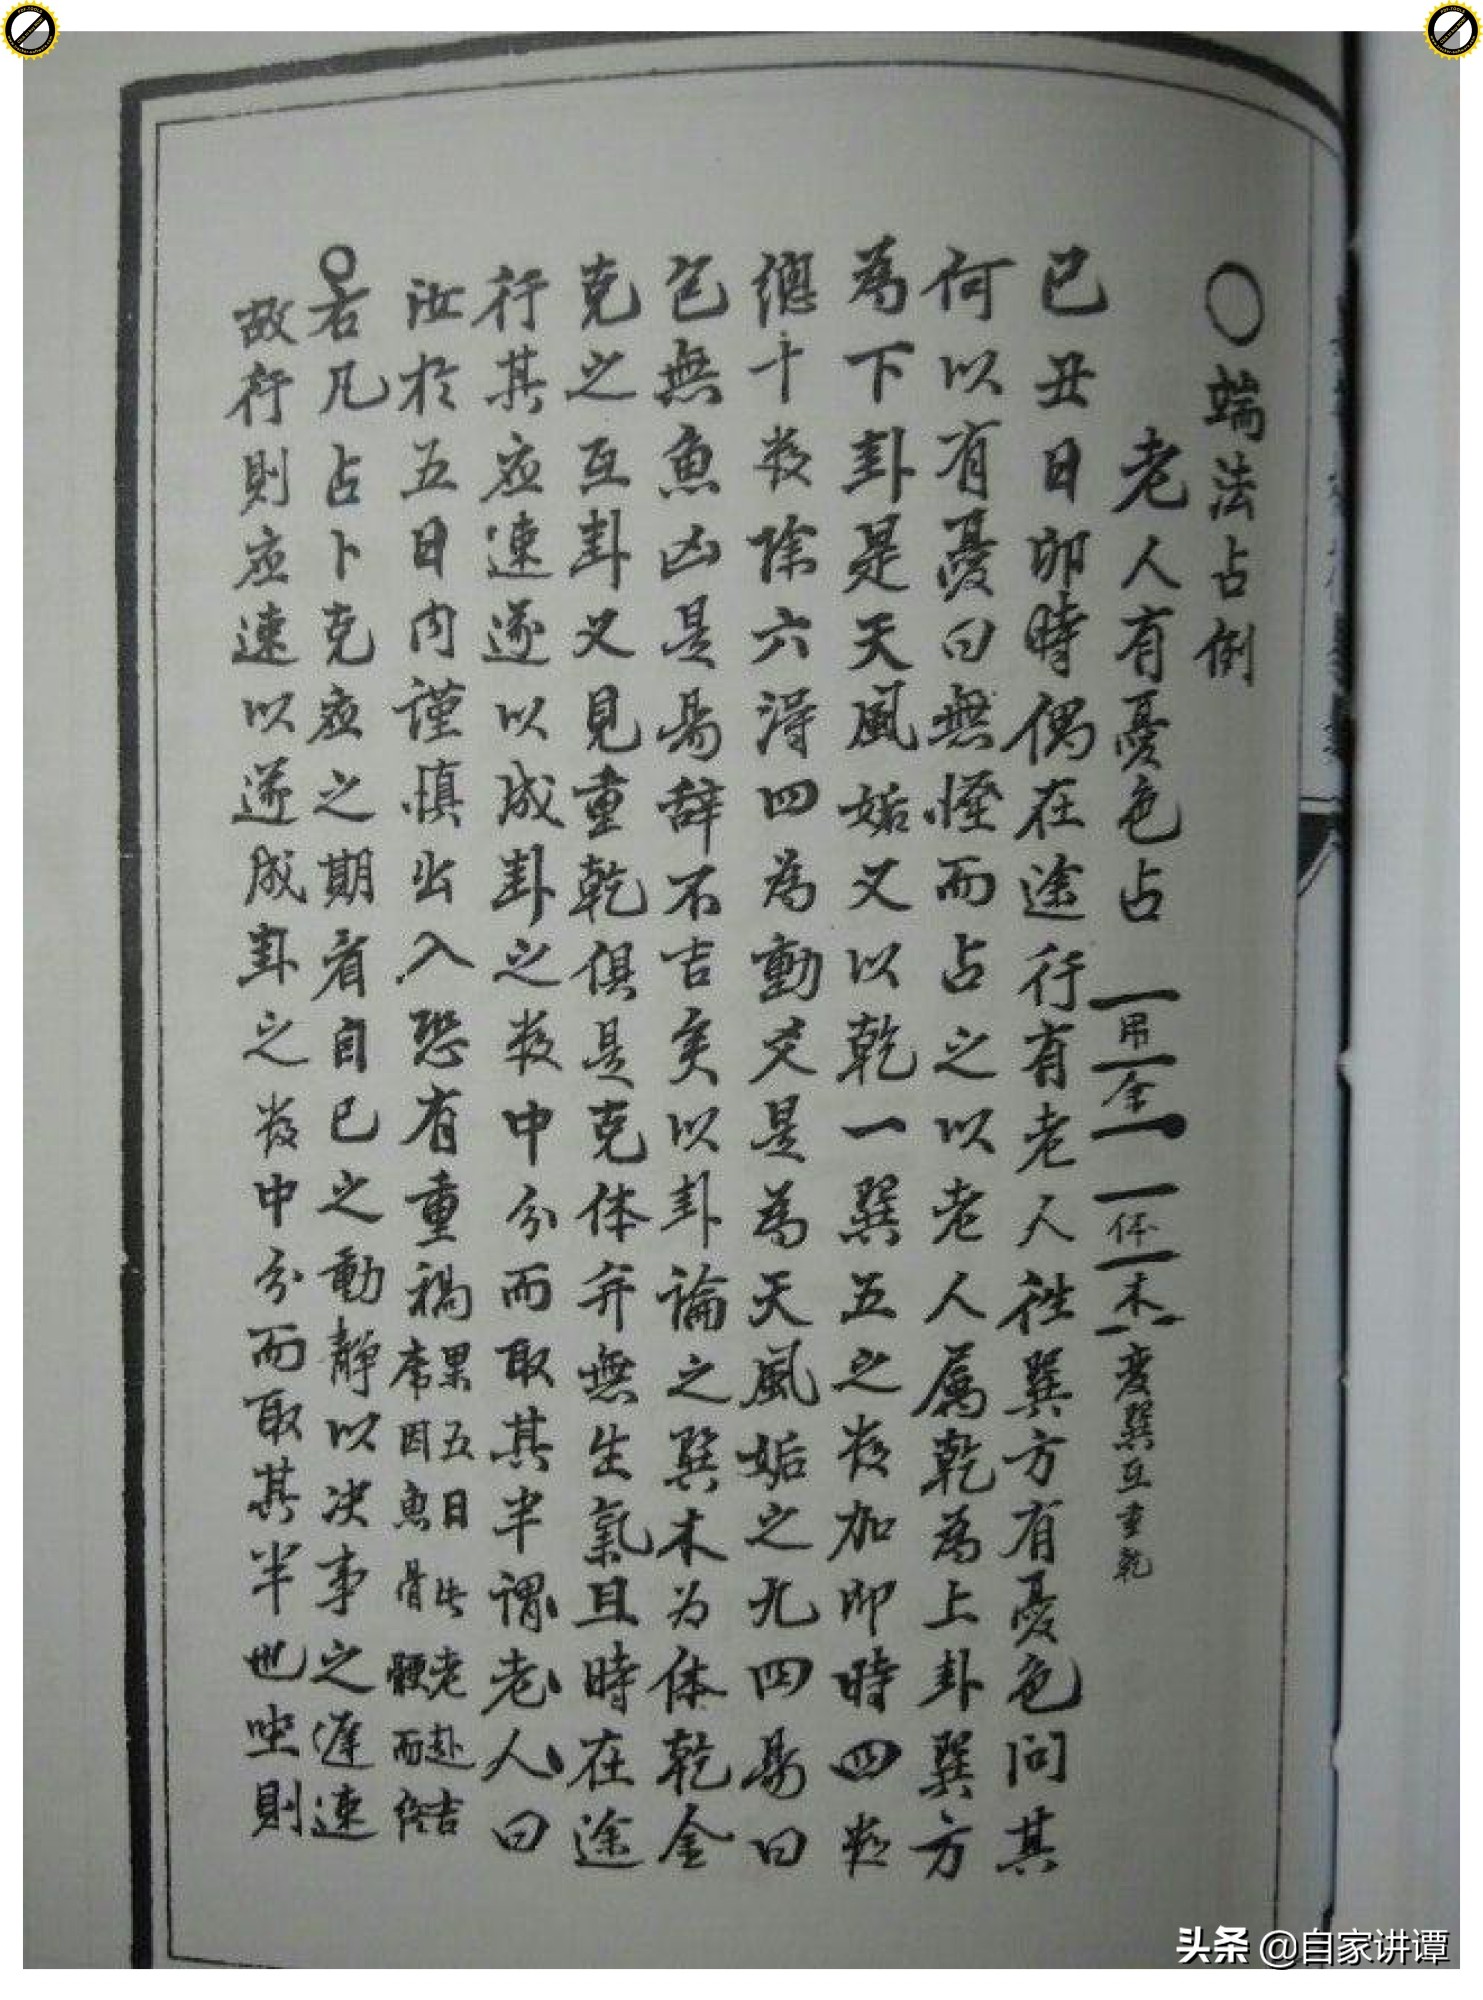 ○端法占例
老人有憂色占
用
金
体
木
变巽互重乾
已丑日卯時偶在途行有老人往巽方有憂色问其
何以有憂曰無怪而占之以老人属乾為上卦巽方
為下卦是天風姤又以乾一巽五之数加卯時四数
總十数除六得四為動爻是為天風姤之九四易曰
包無魚凶是易辞不吉矣以卦論之巽木为体乾金
克之互卦又見重乾俱是克体并無生氣且時在途
行其应速遂以成卦之数中分而取其半謂老人曰
汝於五日内謹慎出入恐有重禍
果五日此老赴吉
席因魚骨骾而终
○右凡占卜克应之期者自已之動静以决事之遲速
故行則应速以遂成卦之数中分而取其半也坐則
头条 @自家讲谭